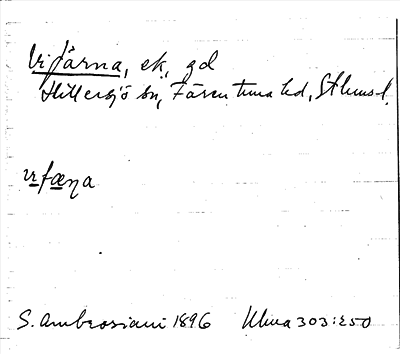 Vifärna, ek., gd
Hillersjö sn, Färentuna hd, Sthms l.
vıfæŋa
S. Ambrosiani 1896 Ulma 303:250